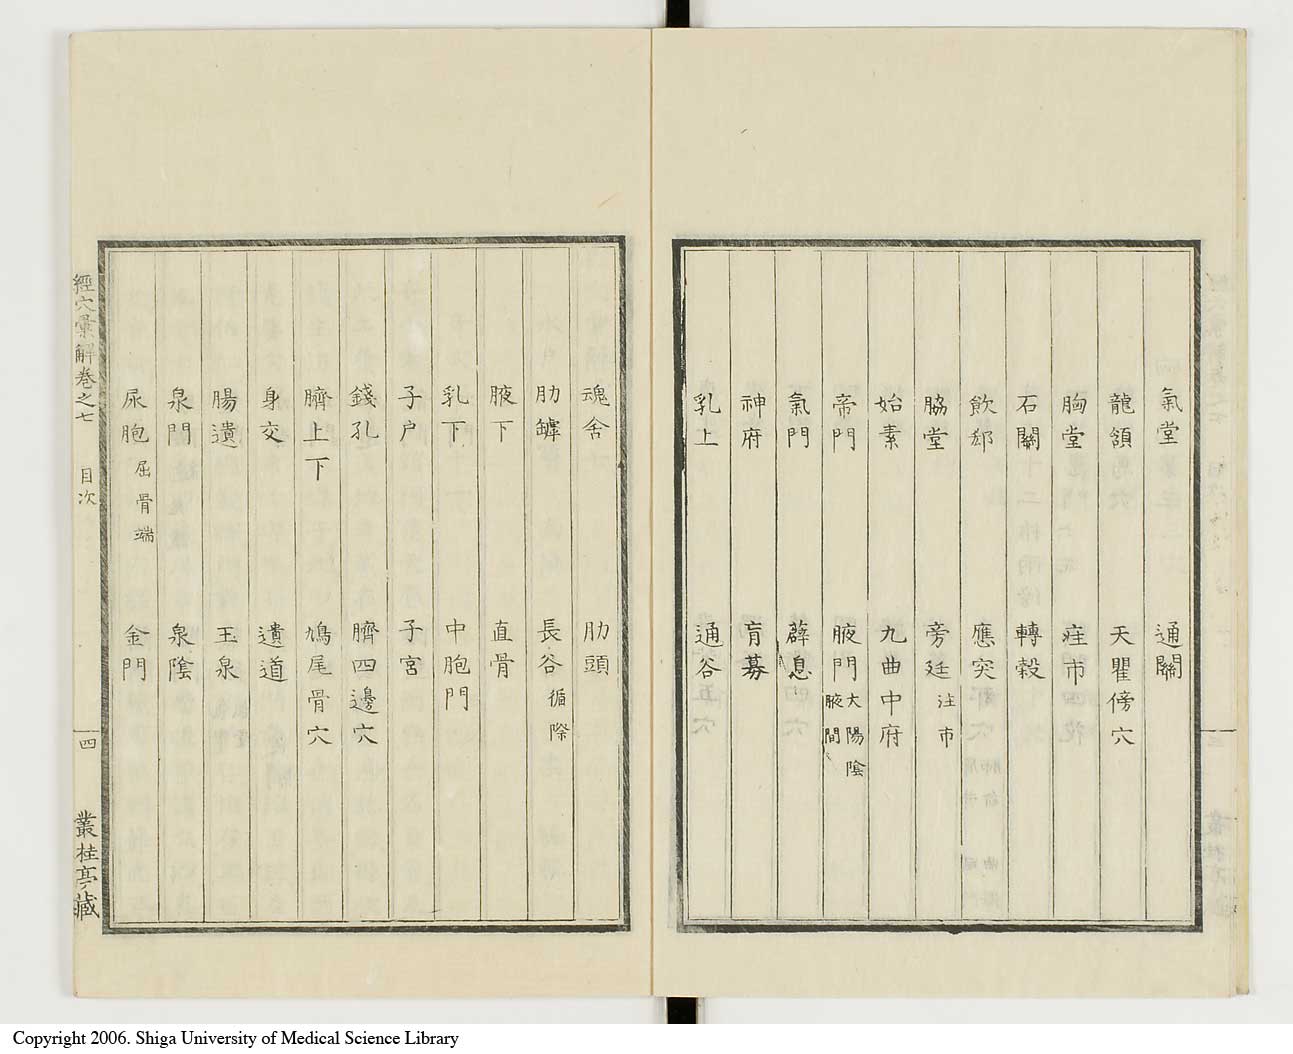 氣堂 通關
龍頷 天瞿傍穴
胸堂 疰市
石關 轉穀
飲郄 應突
脇堂 旁廷 注市
始素 九曲中府
帝門 腋門 大陽陰 腋間
氣門 薜息
神府 肓募
乳上 通谷
魂舍 肋頭
肋罅 長谷 循際
腋下 直骨
乳下 中胞門
子户 子宮
錢孔 臍四邊穴
臍上下 鳩尾骨穴
身交 遺道
腸遺 玉泉
泉門 泉陰
尿胞 屈骨端 金門
經穴彙解卷之七 目次 四 叢桂亭藏
Copyright 2006. Shiga University of Medical Science Library